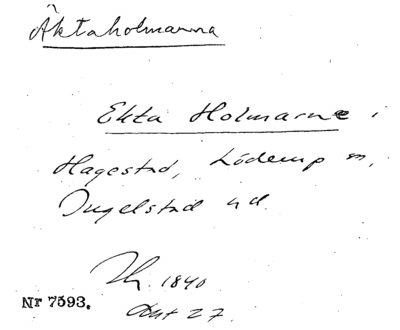 Äktaholmarna
Ekta Holmarne i
Hagestad, Löderup s,
Ingelstad hd.
1840
Nr 7593.
27.